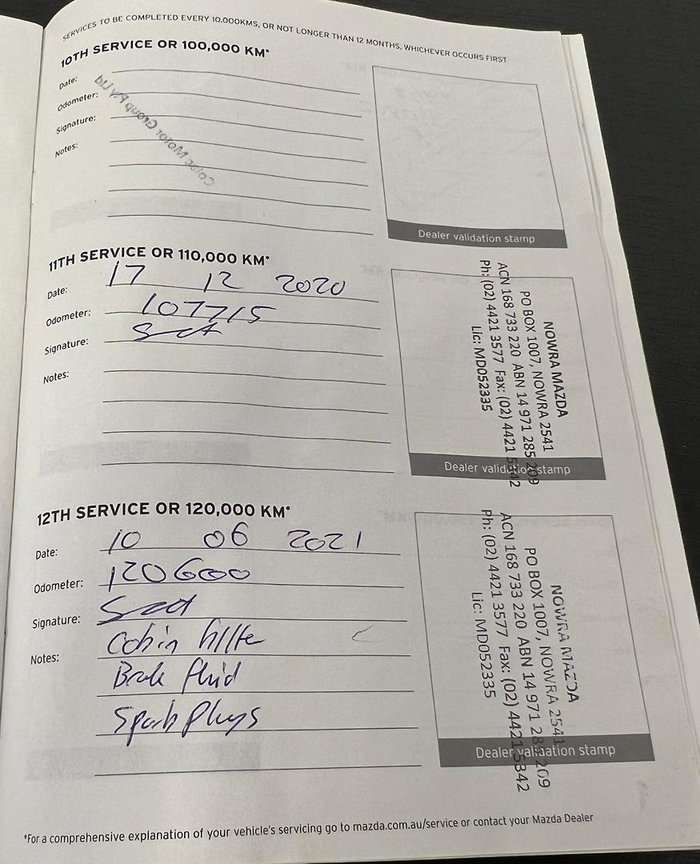 SERVICES TO BE COMPLETED EVERY 10,000KMS, OR NOT LONGER THAN 12 MONTHS, WHICHEVER OCCURS FIRST
10TH SERVICE OR 100,000 KM*
Date:
Odometer:
Signature:
Notes:
Motor Group Pty Ltd
Dealer validation stamp
11TH SERVICE OR 110,000 KM*
Date: 17 12 2020
Odometer: 107715
Signature:
Notes:
NOWRA MAZDA
PO BOX 1007, NOWRA 2541
ACN 168 733 220 ABN 14 971 285 209
Ph: (02) 4421 3577 Fax: (02) 4421 5342
Lic: MD052335
Dealer validation stamp
12TH SERVICE OR 120,000 KM*
Date: 10 06 2021
Odometer: 120600
Signature:
Notes: Cabin filter
Brake fluid
Spark Plugs
NOWRA MAZDA
PO BOX 1007, NOWRA 2541
ACN 168 733 220 ABN 14 971 285 209
Ph: (02) 4421 3577 Fax: (02) 4421 5342
Lic: MD052335
Dealer validation stamp
*For a comprehensive explanation of your vehicle's servicing go to mazda.com.au/service or contact your Mazda Dealer